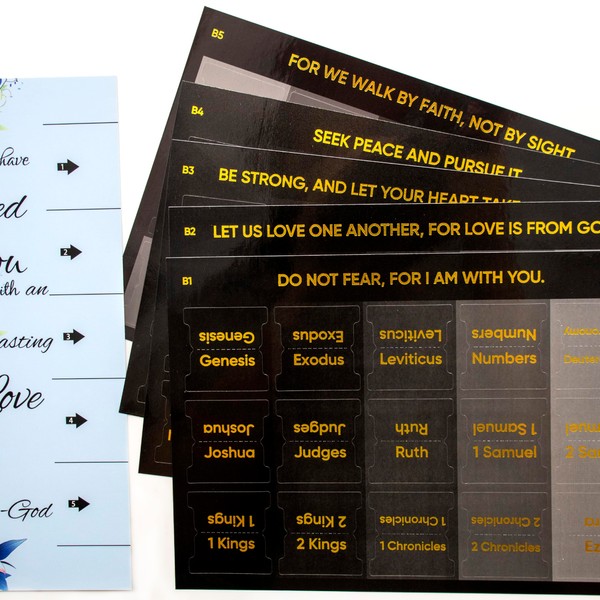 have
1
2
with an
3
Love
4
-God
5
B5
FOR WE WALK BY FAITH, NOT BY SIGHT
B4
SEEK PEACE AND PURSUE IT
B3
BE STRONG, AND LET YOUR HEART TAKE
B2
LET US LOVE ONE ANOTHER, FOR LOVE IS FROM
B1
DO NOT FEAR, FOR I AM WITH YOU.
Genesis Exodus Leviticus Numbers
Genesis Exodus Leviticus Numbers
Joshua Judges Ruth 1 Samuel
Joshua Judges Ruth 1 Samuel
1 Kings 2 Kings 1 Chronicles 2 Chronicles
1 Kings 2 Kings 1 Chronicles 2 Chronicles